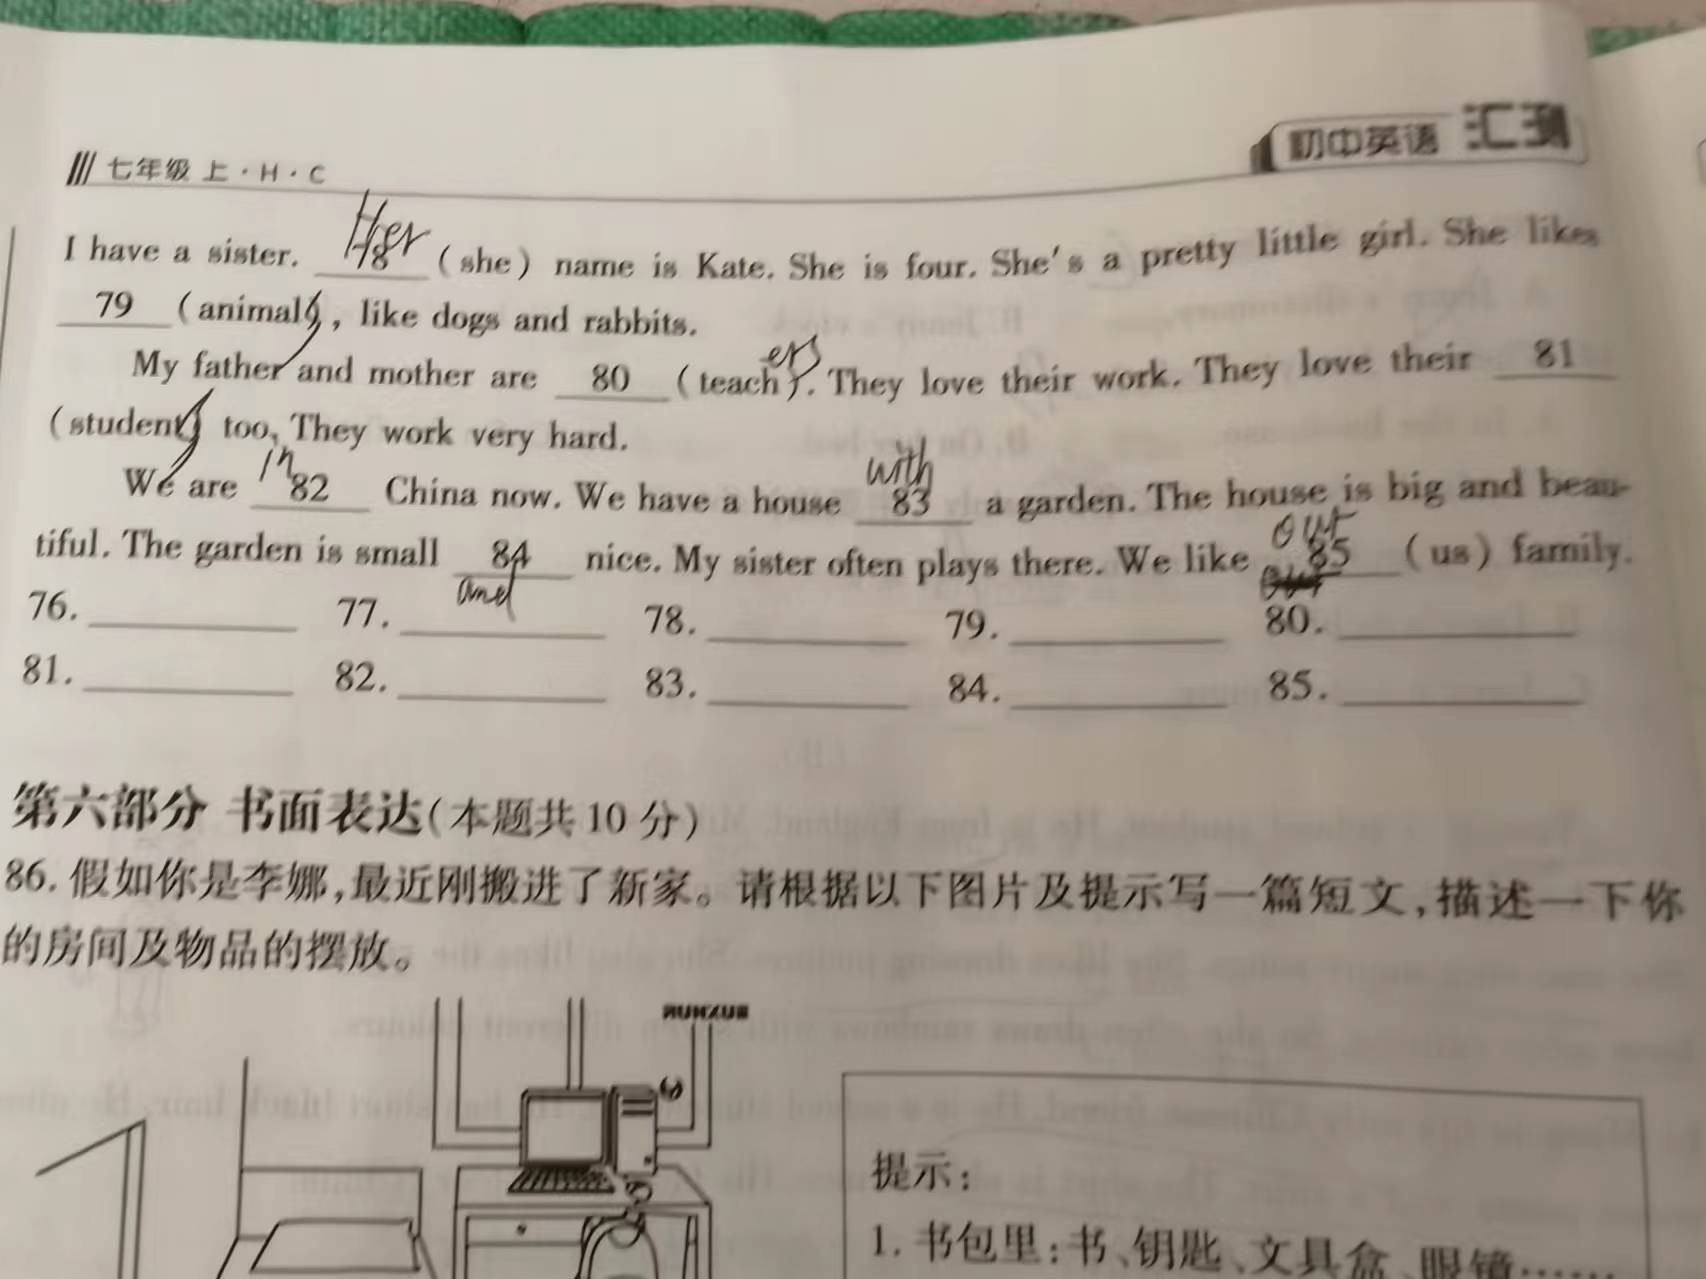 七年级 上·H·C
初中英语 汇测
I have a sister. Her 78 (she) name is Kate. She is four. She's a pretty little girl. She likes
79 (animal)s, like dogs and rabbits.
My father and mother are 80 (teach)ers. They love their work. They love their 81
(student)s too. They work very hard.
We are in 82 China now. We have a house with 83 a garden. The house is big and beau-
tiful. The garden is small 84 and nice. My sister often plays there. We like our 85 (us) family.
76. 77. 78. 79. 80.
81. 82. 83. 84. 85.
第六部分 书面表达(本题共10分)
86. 假如你是李娜,最近刚搬进了新家。请根据以下图片及提示写一篇短文,描述一下你
的房间及物品的摆放。
提示:
1. 书包里:书、钥匙、文具盒、眼镜……